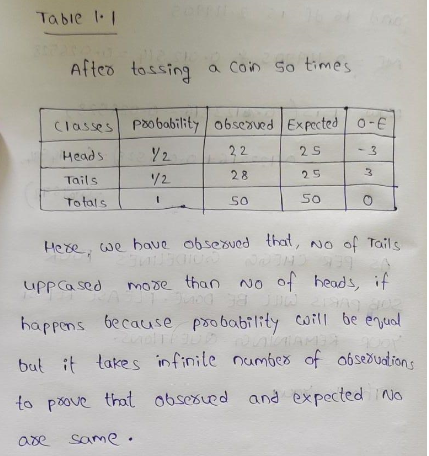 Table 1.1
After tossing a coin 50 times
Classes Probability Observed Expected O-E
Heads 1/2 22 25 -3
Tails 1/2 28 25 3
Totals 1 50 50 0
Here, we have observed that, No of Tails
uppcased more than No of heads, if
happens because probability will be equal
but it takes infinite number of observations
to prove that observed and expected No
are same.